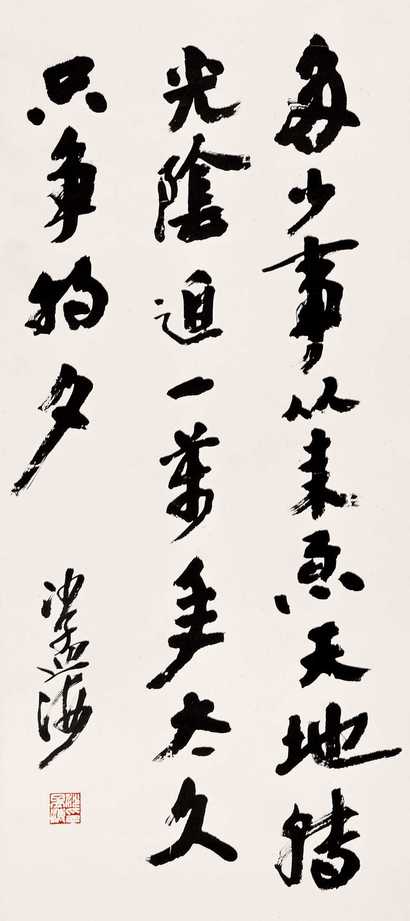 多少事从来急天地转
光陰迫一萬年太久
只争朝夕
沙孟海